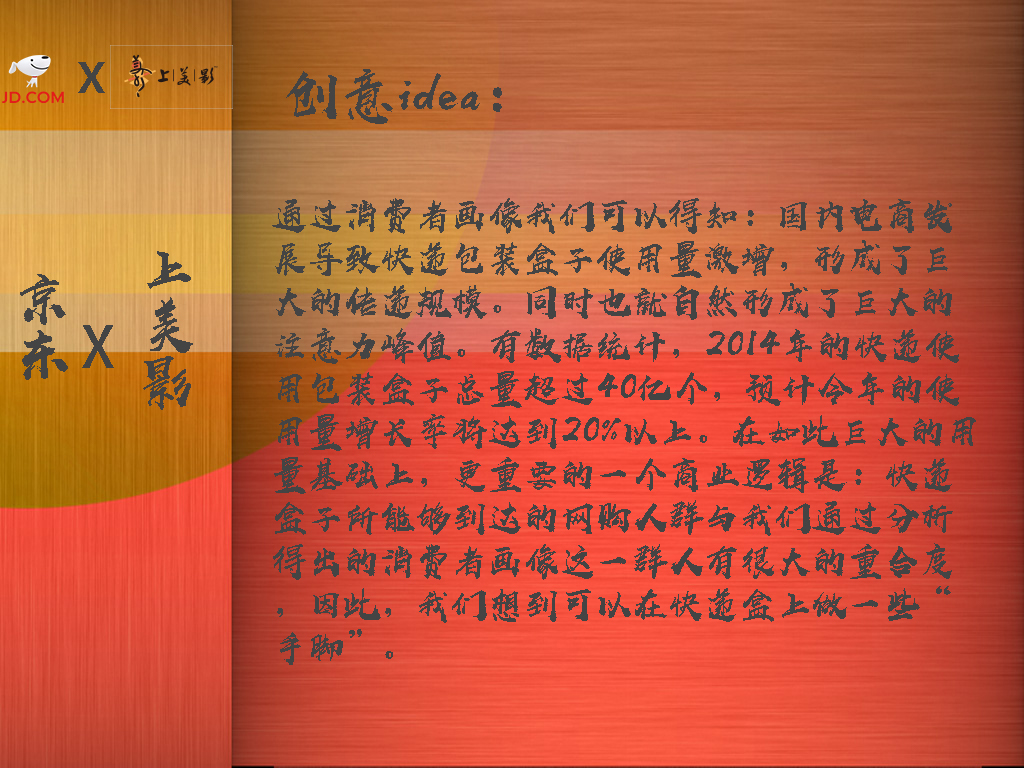 JD.COM
X
上美影
京东
X
上美影
创意idea：
通过消费者画像我们可以得知：国内电商发
展导致快递包装盒子使用量激增，形成了巨
大的传递规模。同时也就自然形成了巨大的
注意力峰值。有数据统计，2014年的快递使
用包装盒子总量超过40亿个，预计今年的使
用量增长率将达到20%以上。在如此巨大的用
量基础上，更重要的一个商业逻辑是：快递
盒子所能够到达的网购人群与我们通过分析
得出的消费者画像这一群人有很大的重合度
，因此，我们想到可以在快递盒上做一些“
手脚”。